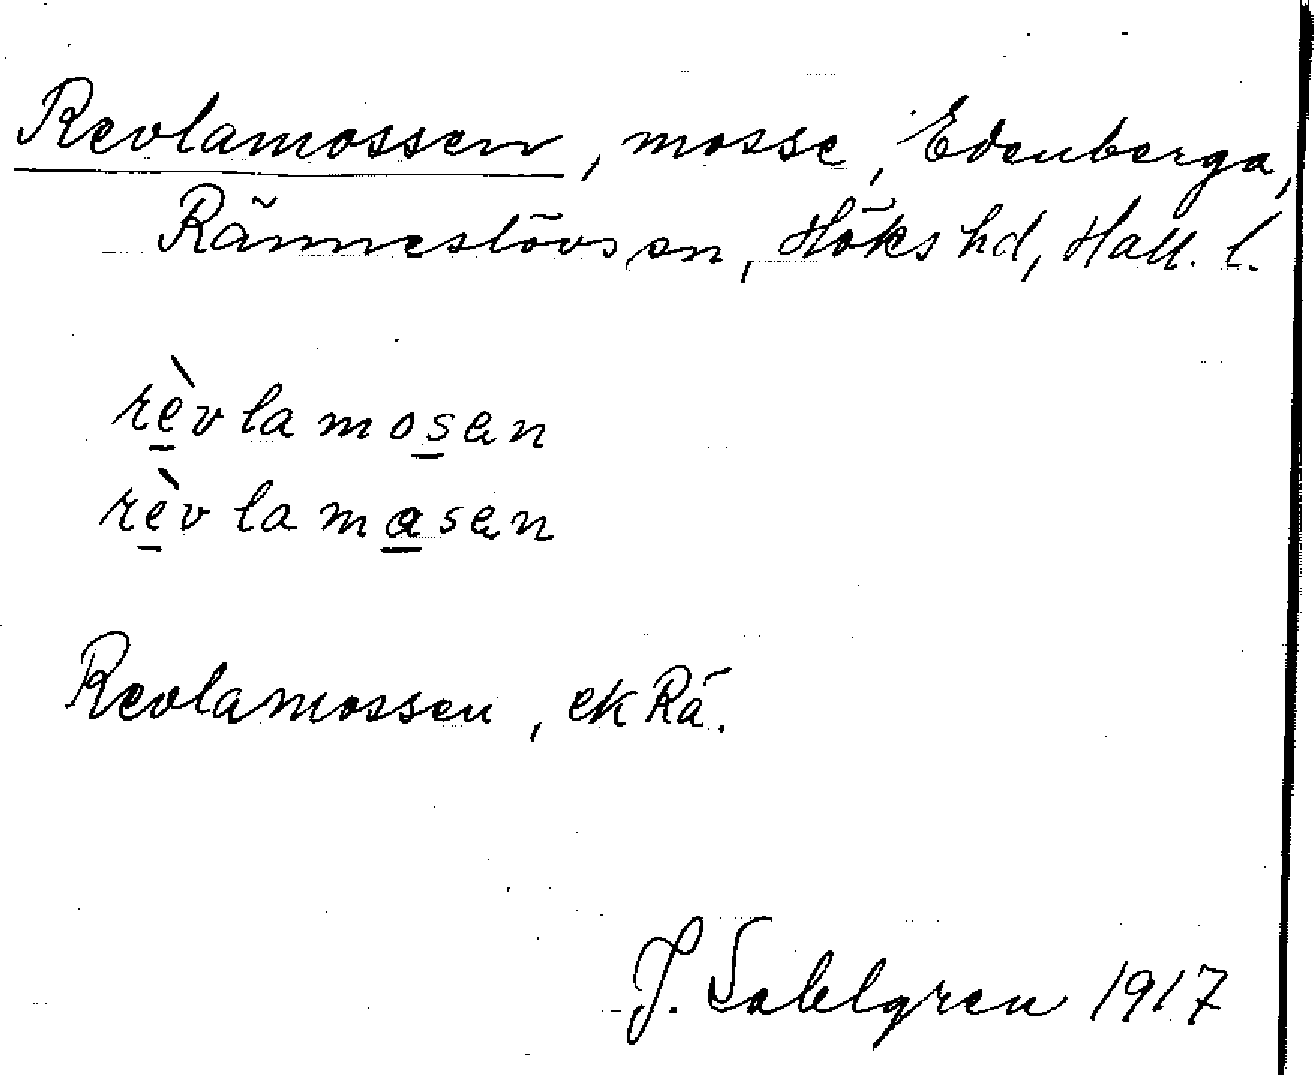 Revlamossen, mosse, Edenberga,
Ränneslövs sn, Höks hd, Hall. l.
rèvlamosen
rèvlamasen
Revlamossen, ek Rä.
J. Sahlgren 1917